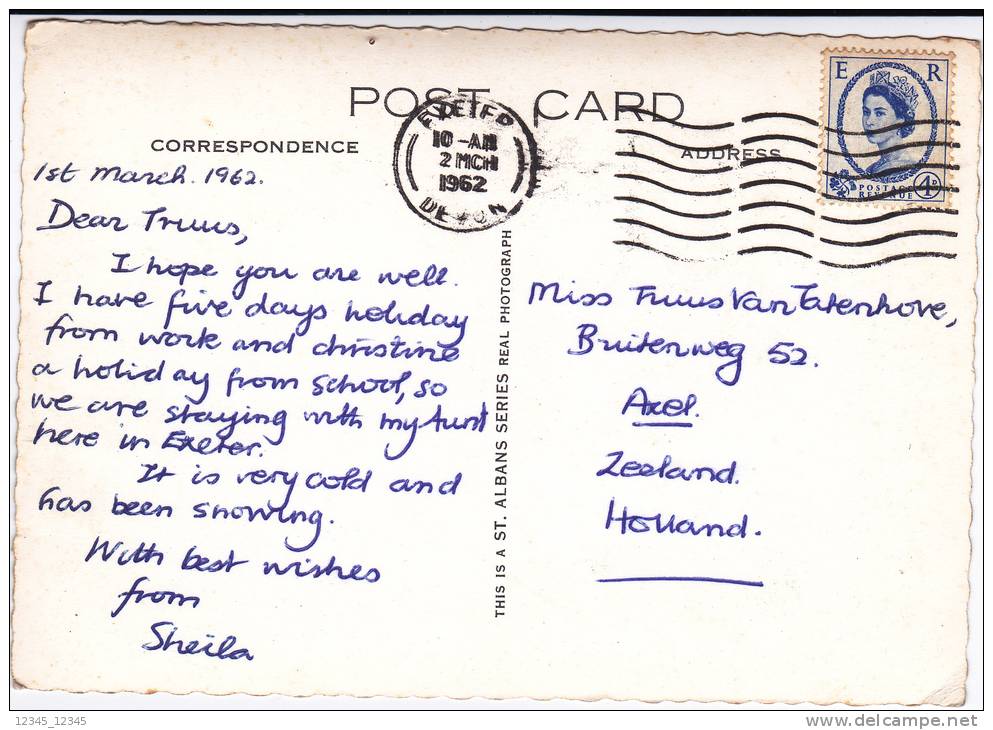 POST CARD
CORRESPONDENCE
ADDRESS
E R
POSTAGE
REVENUE
4D
EXETER
10-AM
2 MCH
1962
DEVON
1st March. 1962.
Dear Truus,
I hope you are well.
I have five days holiday
from work and christine
a holiday from school, so
we are staying with my Aunt
here in Exeter.
It is very cold and
has been snowing.
With best wishes
from
Sheila
THIS IS A ST. ALBANS SERIES REAL PHOTOGRAPH
Miss Truus Van Tatenhove,
Buitenweg 52.
Axel.
Zeeland.
Holland.
12345_12345
www.delcampe.net